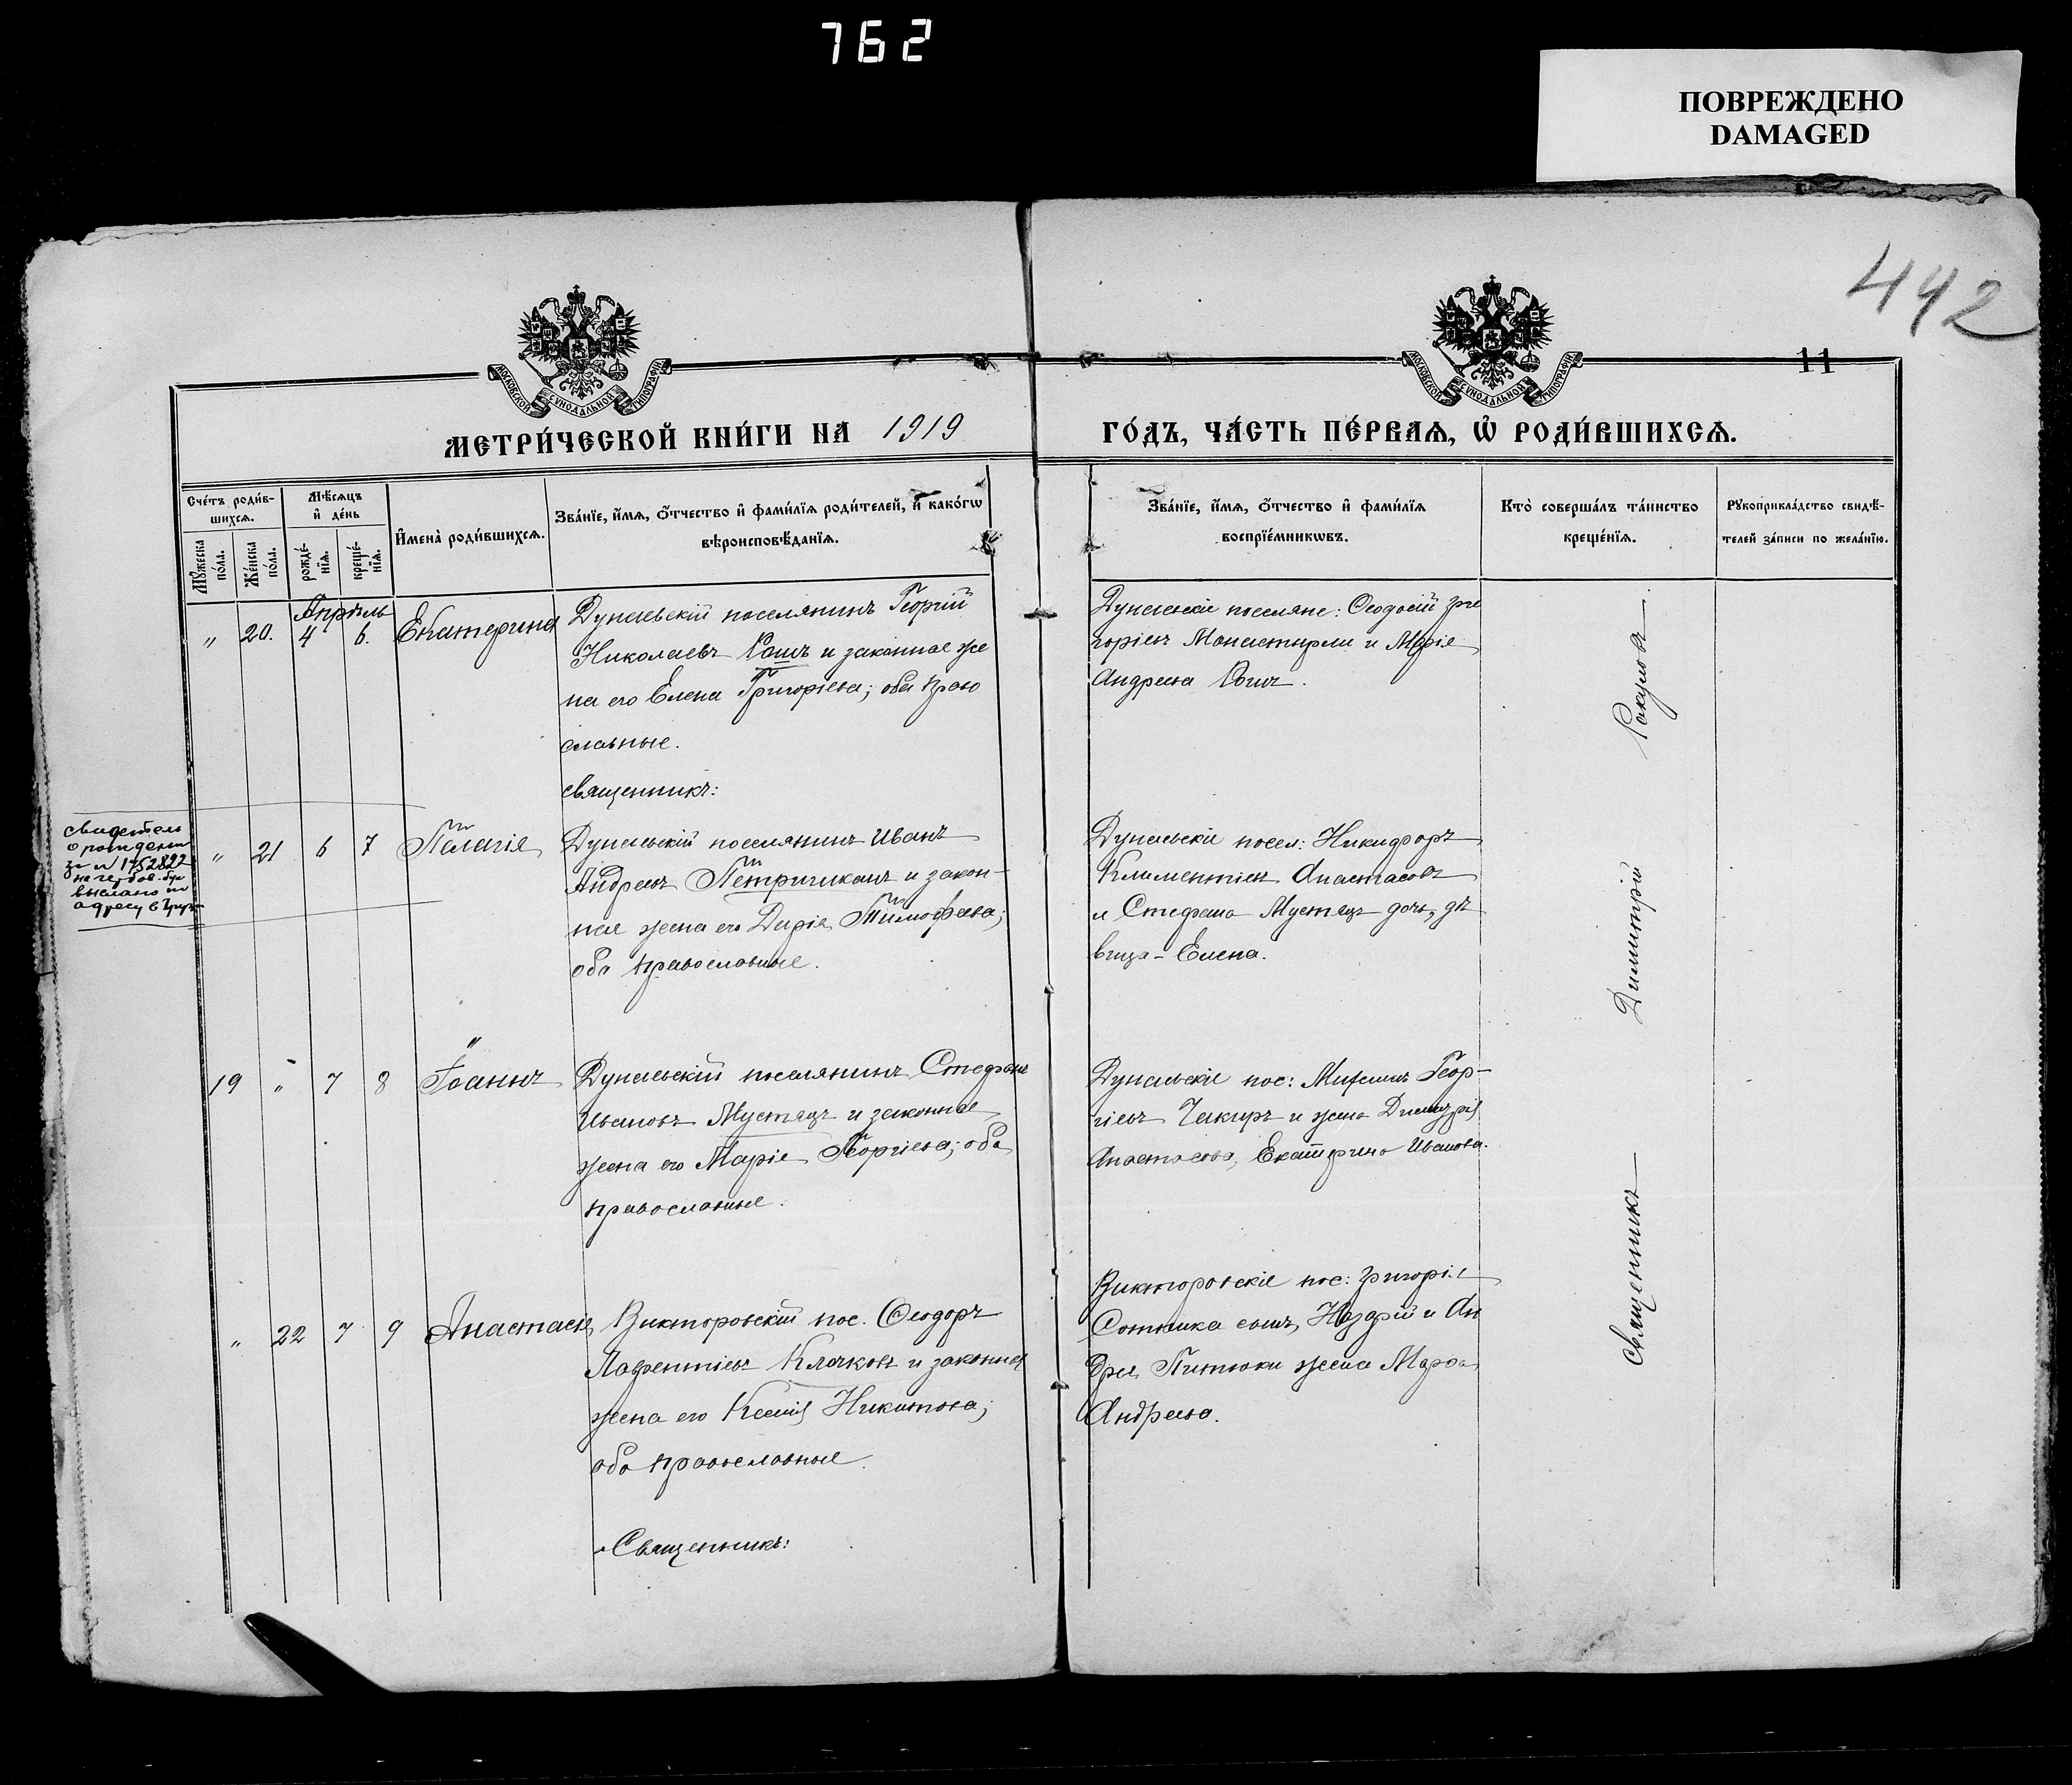 762
ПОВРЕЖДЕНО
DAMAGED
442
11
МОСКОВСКОЙ СУНОДАЛЬНОЙ ТИПОГРАФІИ
МОСКОВСКОЙ СУНОДАЛЬНОЙ ТИПОГРАФІИ
МЕТРИ́ЧЕСКОЙ КНИ́ГИ НА 1919
ГО́ДЪ, ЧА́СТЬ ПЕ́РВАЯ, Ѡ҆ РОДИ́ВШИХСЯ.
Сче́тъ роди́в-
шихся.
Мꙋ́жеска по́ла.
Же́нска по́ла.
Мѣ́сяцъ
и҆ де́нь
рожде́-
нїя.
креще́-
нїя.
И҆мена̀ роди́вшихся.
Зва́нїе, и҆́мя, ѻ҆́тчество и҆ фами́лїя роди́телей, и҆ како́гѡ
вѣроисповѣ́данїя.
Зва́нїе, и҆́мя, ѻ҆́тчество и҆ фами́лїя
воспрїе́мникѡвъ.
Кто̀ соверша́лъ та́инство
креще́нїя.
Рꙋкоприкла́дство свидѣ́-
телей за́писи по жела́нїю.
Апрѣль
" 20. 4 6. Екатерина
Дунаевскій поселянинъ Георгій
Николаевъ Кошъ и законная же
на его Елена Григоріева; оба право
славные.
священникъ:
Дунаевскіе поселяне: Ѳеодосій Гри
горіевъ Монастырли и Марія
Андреева Кошъ.
свидетель
о рождении
за № 1752822
выслано по
адресу
" 21 6 7 Пелагія
Дунаевскій поселянинъ Иванъ
Андреевъ Петричиканъ и закон-
ная жена его Дарія Тимофеева;
оба православные.
Дунаевскіе посел: Никифоръ
Климентіевъ Анастасовъ
и Стефана Мустяцъ дочь, дѣ
вица - Елена.
19 " 7 8 Іоаннъ
Дунаевскій поселянинъ Стефанъ
Ивановъ Мустяцъ и законная
жена его Марія Георгіева; оба
православные.
Дунаевскіе пос: Михаилъ Геор-
гіевъ Чакиръ и жена Димитрія
Анастасова, Екатерина Иванова.
" 22 7 9 Анастасія
Викторовскій пос. Ѳеодоръ
Лаврентіевъ Клочковъ и законная
жена его Ксенія Никитова;
оба православные.
Священникъ:
Викторовскіе пос: Григорія
Сотника сынъ, Назарій и Ан
дрея Питюки жена Марѳа
Андреева.
Священникъ Димитрій